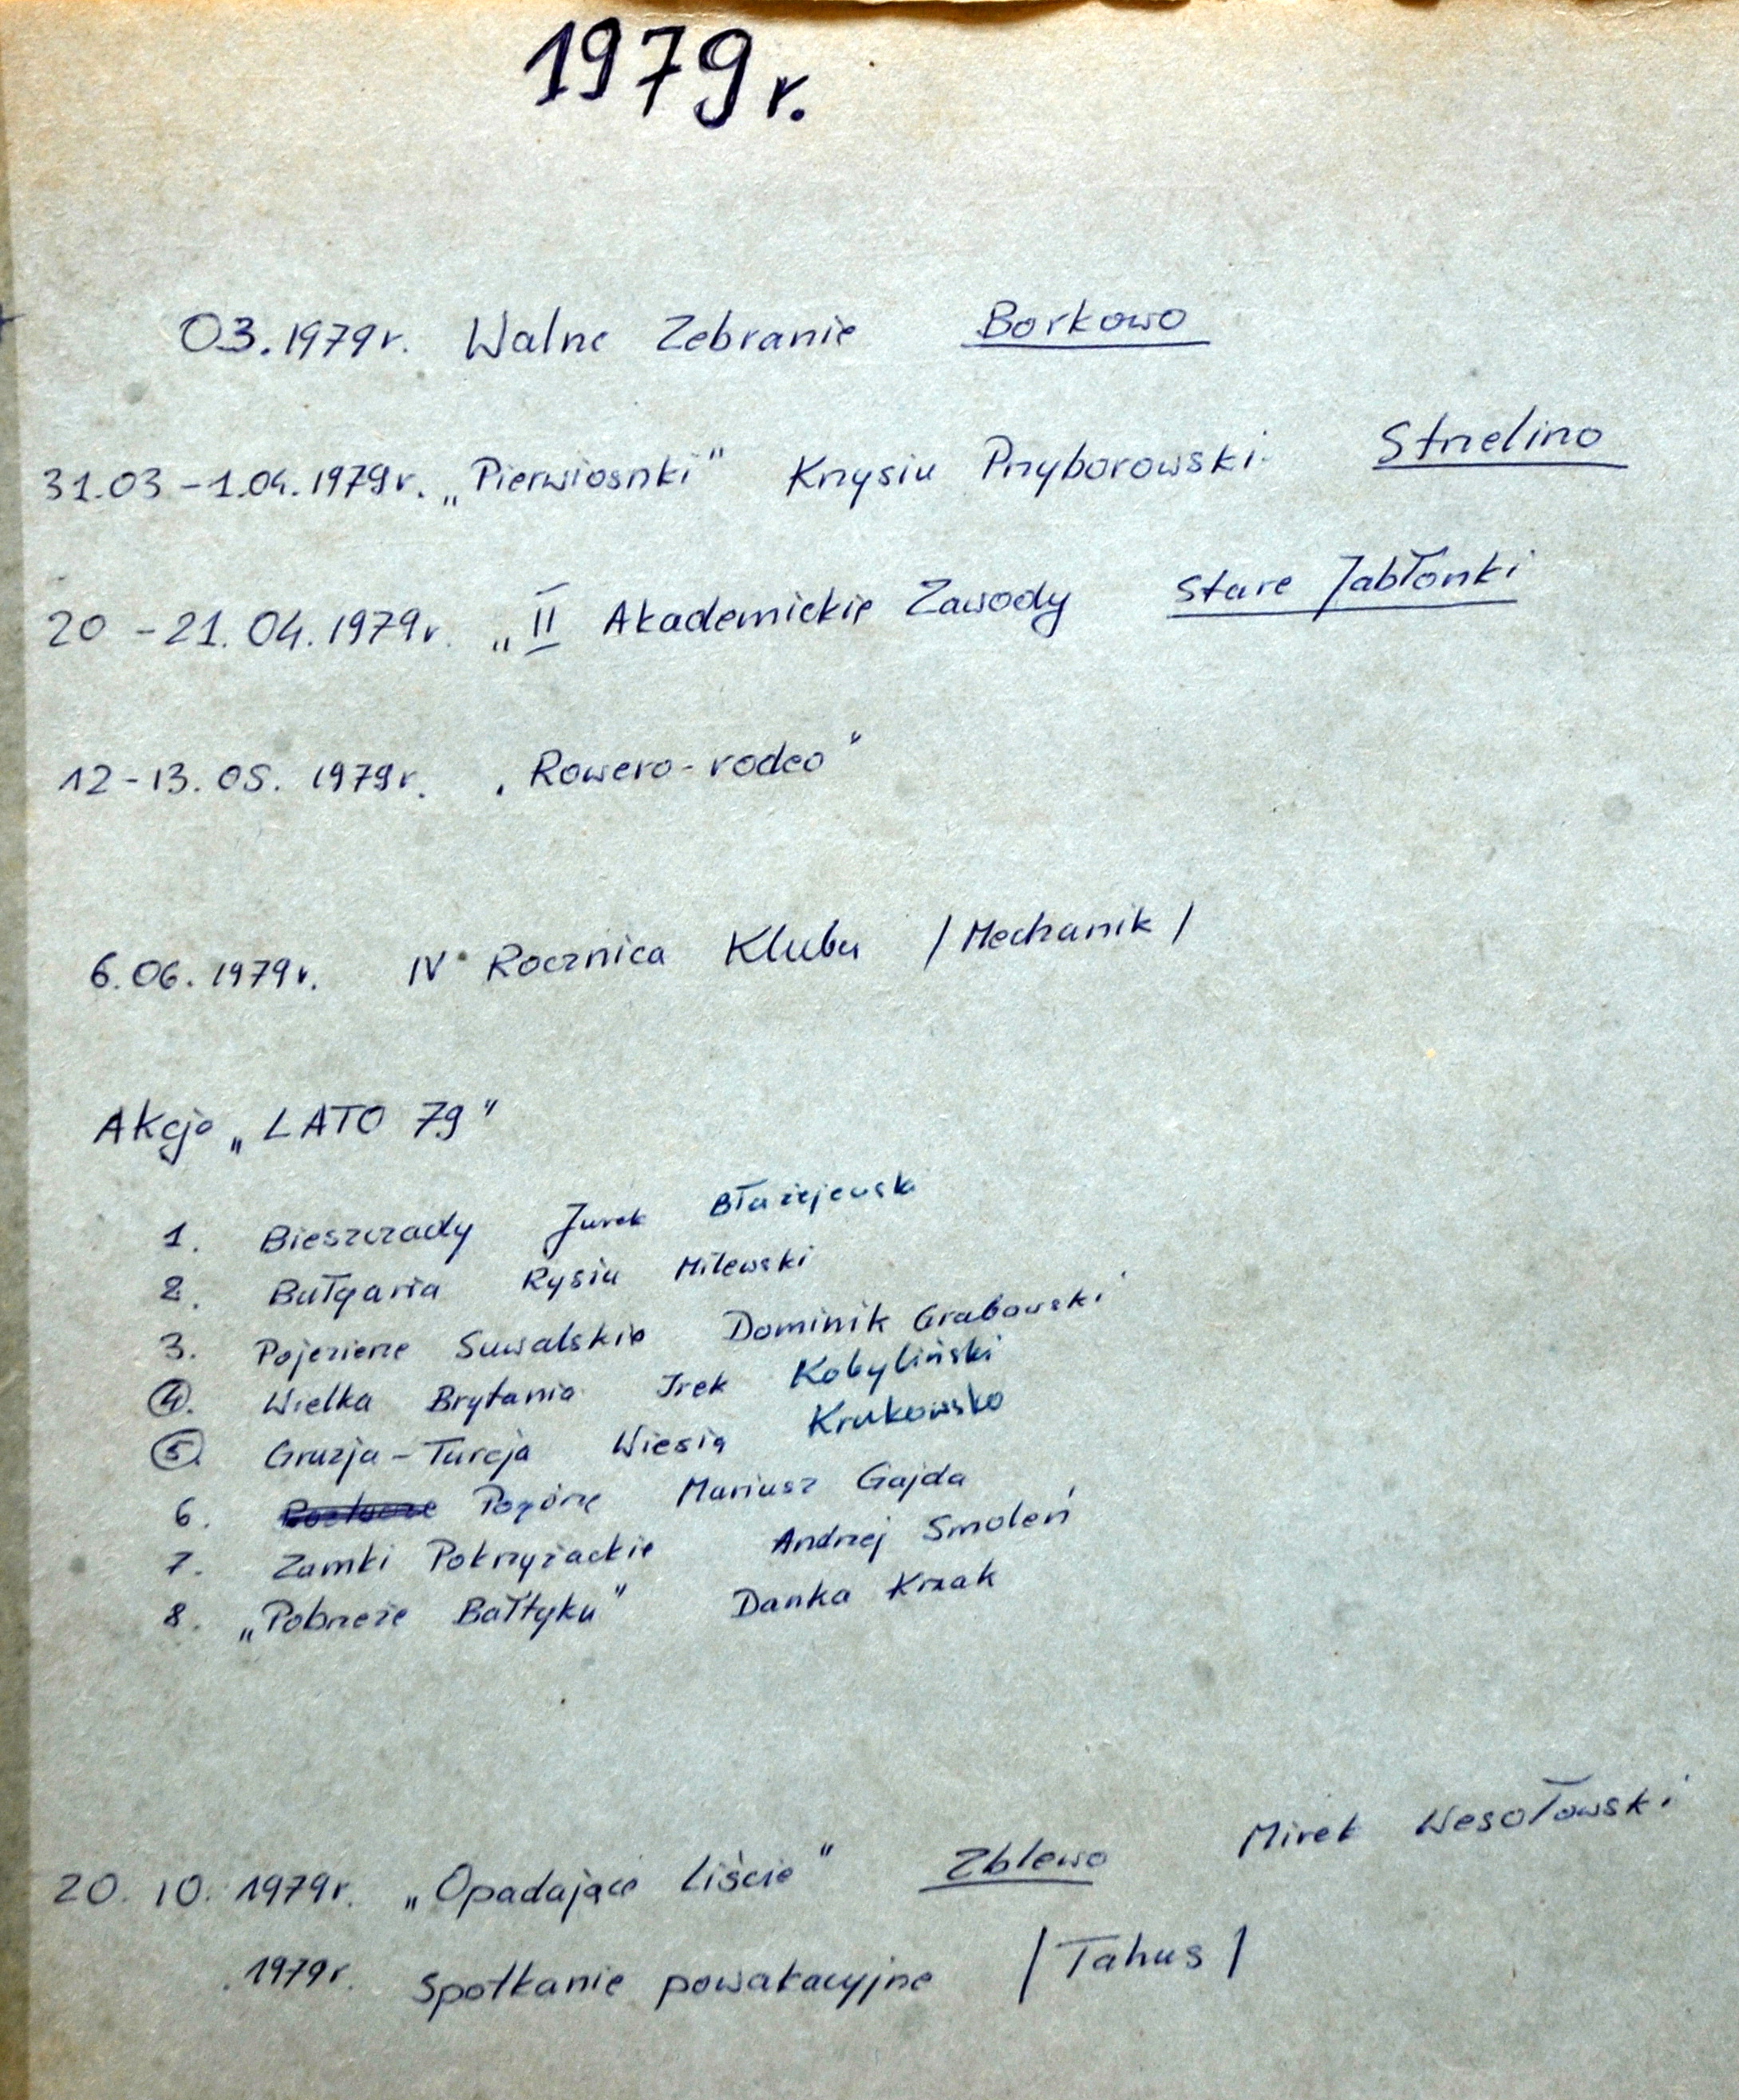 1979r.
03.1979r. Walne Zebranie Borkowo
31.03 - 1.04.1979r. „Pierwiosnki" Krzysiu Przyborowski Strzelino
20 - 21.04.1979r. „II Akademickie Zawody Stare Jabłonki
12 - 13.05.1979r. „Rowero-rodeo"
6.06.1979r. IV Rocznica Klubu /Mechanik/
Akcja „LATO 79"
1. Bieszczady Jurek Błażejewski
2. Bułgaria Rysiu Milewski
3. Pojezierze Suwalskie Dominik Grabowski
4. Wielka Brytania Irek Kobyliński
5. Gruzja - Turcja Wiesia Krukowska
6. Pogórze Mariusz Gajda
7. Zamki Pokrzyżackie Andrzej Smoleń
8. „Pobrzeże Bałtyku" Danka Krzak
20.10.1979r. „Opadające liście" Zblewo Mirek Wesołowski
.1979r. Spotkanie powakacyjne /Tahus/